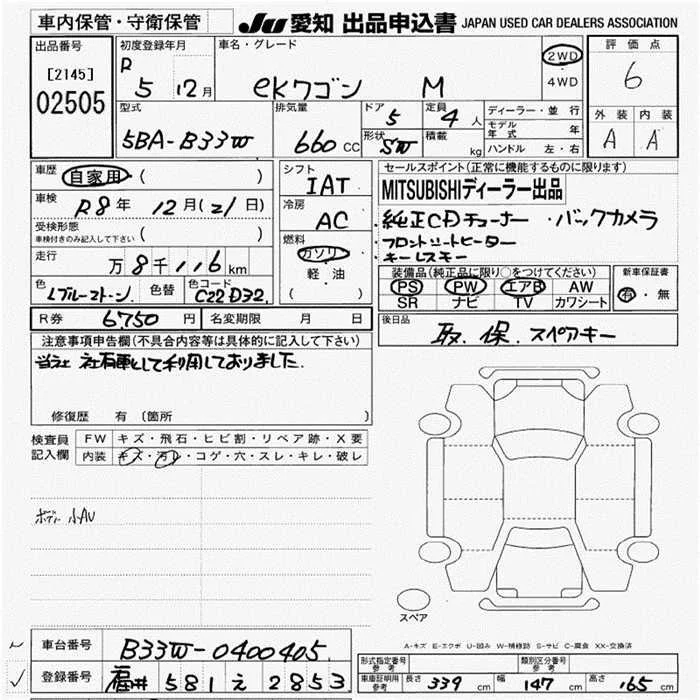 車内保管・守衛保管
JU 愛知 出品申込書 JAPAN USED CAR DEALERS ASSOCIATION
出品番号
[2145]
02505
初度登録年月
R 5 12月
車名・グレード
eKワゴン M
2WD
4WD
評価点
6
外装 内装
A A
型式
5BA-B33W
排気量
660 CC
ドア 5
定員 4人
形状 SW
積載 kg
ディーラー・並行
モデル年式 年
ハンドル 左・右
車歴
自家用 ( )
車検
R8年 12月(21日)
受検形態
車検付きのみ記入して下さい ( )
走行
万8千116km
色 Lブルーマトーン
色替
色コード C22 D32.
シフト
IAT
冷房
AC
燃料
ガソリン
軽油
( )
セールスポイント(正常に機能するものに限ります)
MITSUBISHIディーラー出品
・純正CDチューナー ・バックカメラ
・フロントシートヒーター
・キーレスキー
装備品(純品に限り○をつけてください)
PS PW エアB AW
SR ナビ TV カワシート
新車保証書
有・無
R券 6750円
名変期限 月 日
後日品
取.保.スペアキー
注意事項申告欄(不具合内容等は具体的に記入して下さい)
当社 社有車として利用しておりました.
修復歴 有 (箇所
検査員記入欄
FW キズ・飛石・ヒビ割・リペア跡・X要
内装 キズ・汚レ・コゲ・穴・スレ・キレ・破レ
ボデー 小AU
スペア
A-キズ E-エクボ U-凹み W-補修跡 S-サビ C-腐食 XX-交換済
車台番号 B33W-0400405.
登録番号 福井 581 え 2853
型式指定番号 参考
類別区分番号 参考
車庫証明用 参考
長さ 339 cm
幅 147 cm
高さ 165 cm